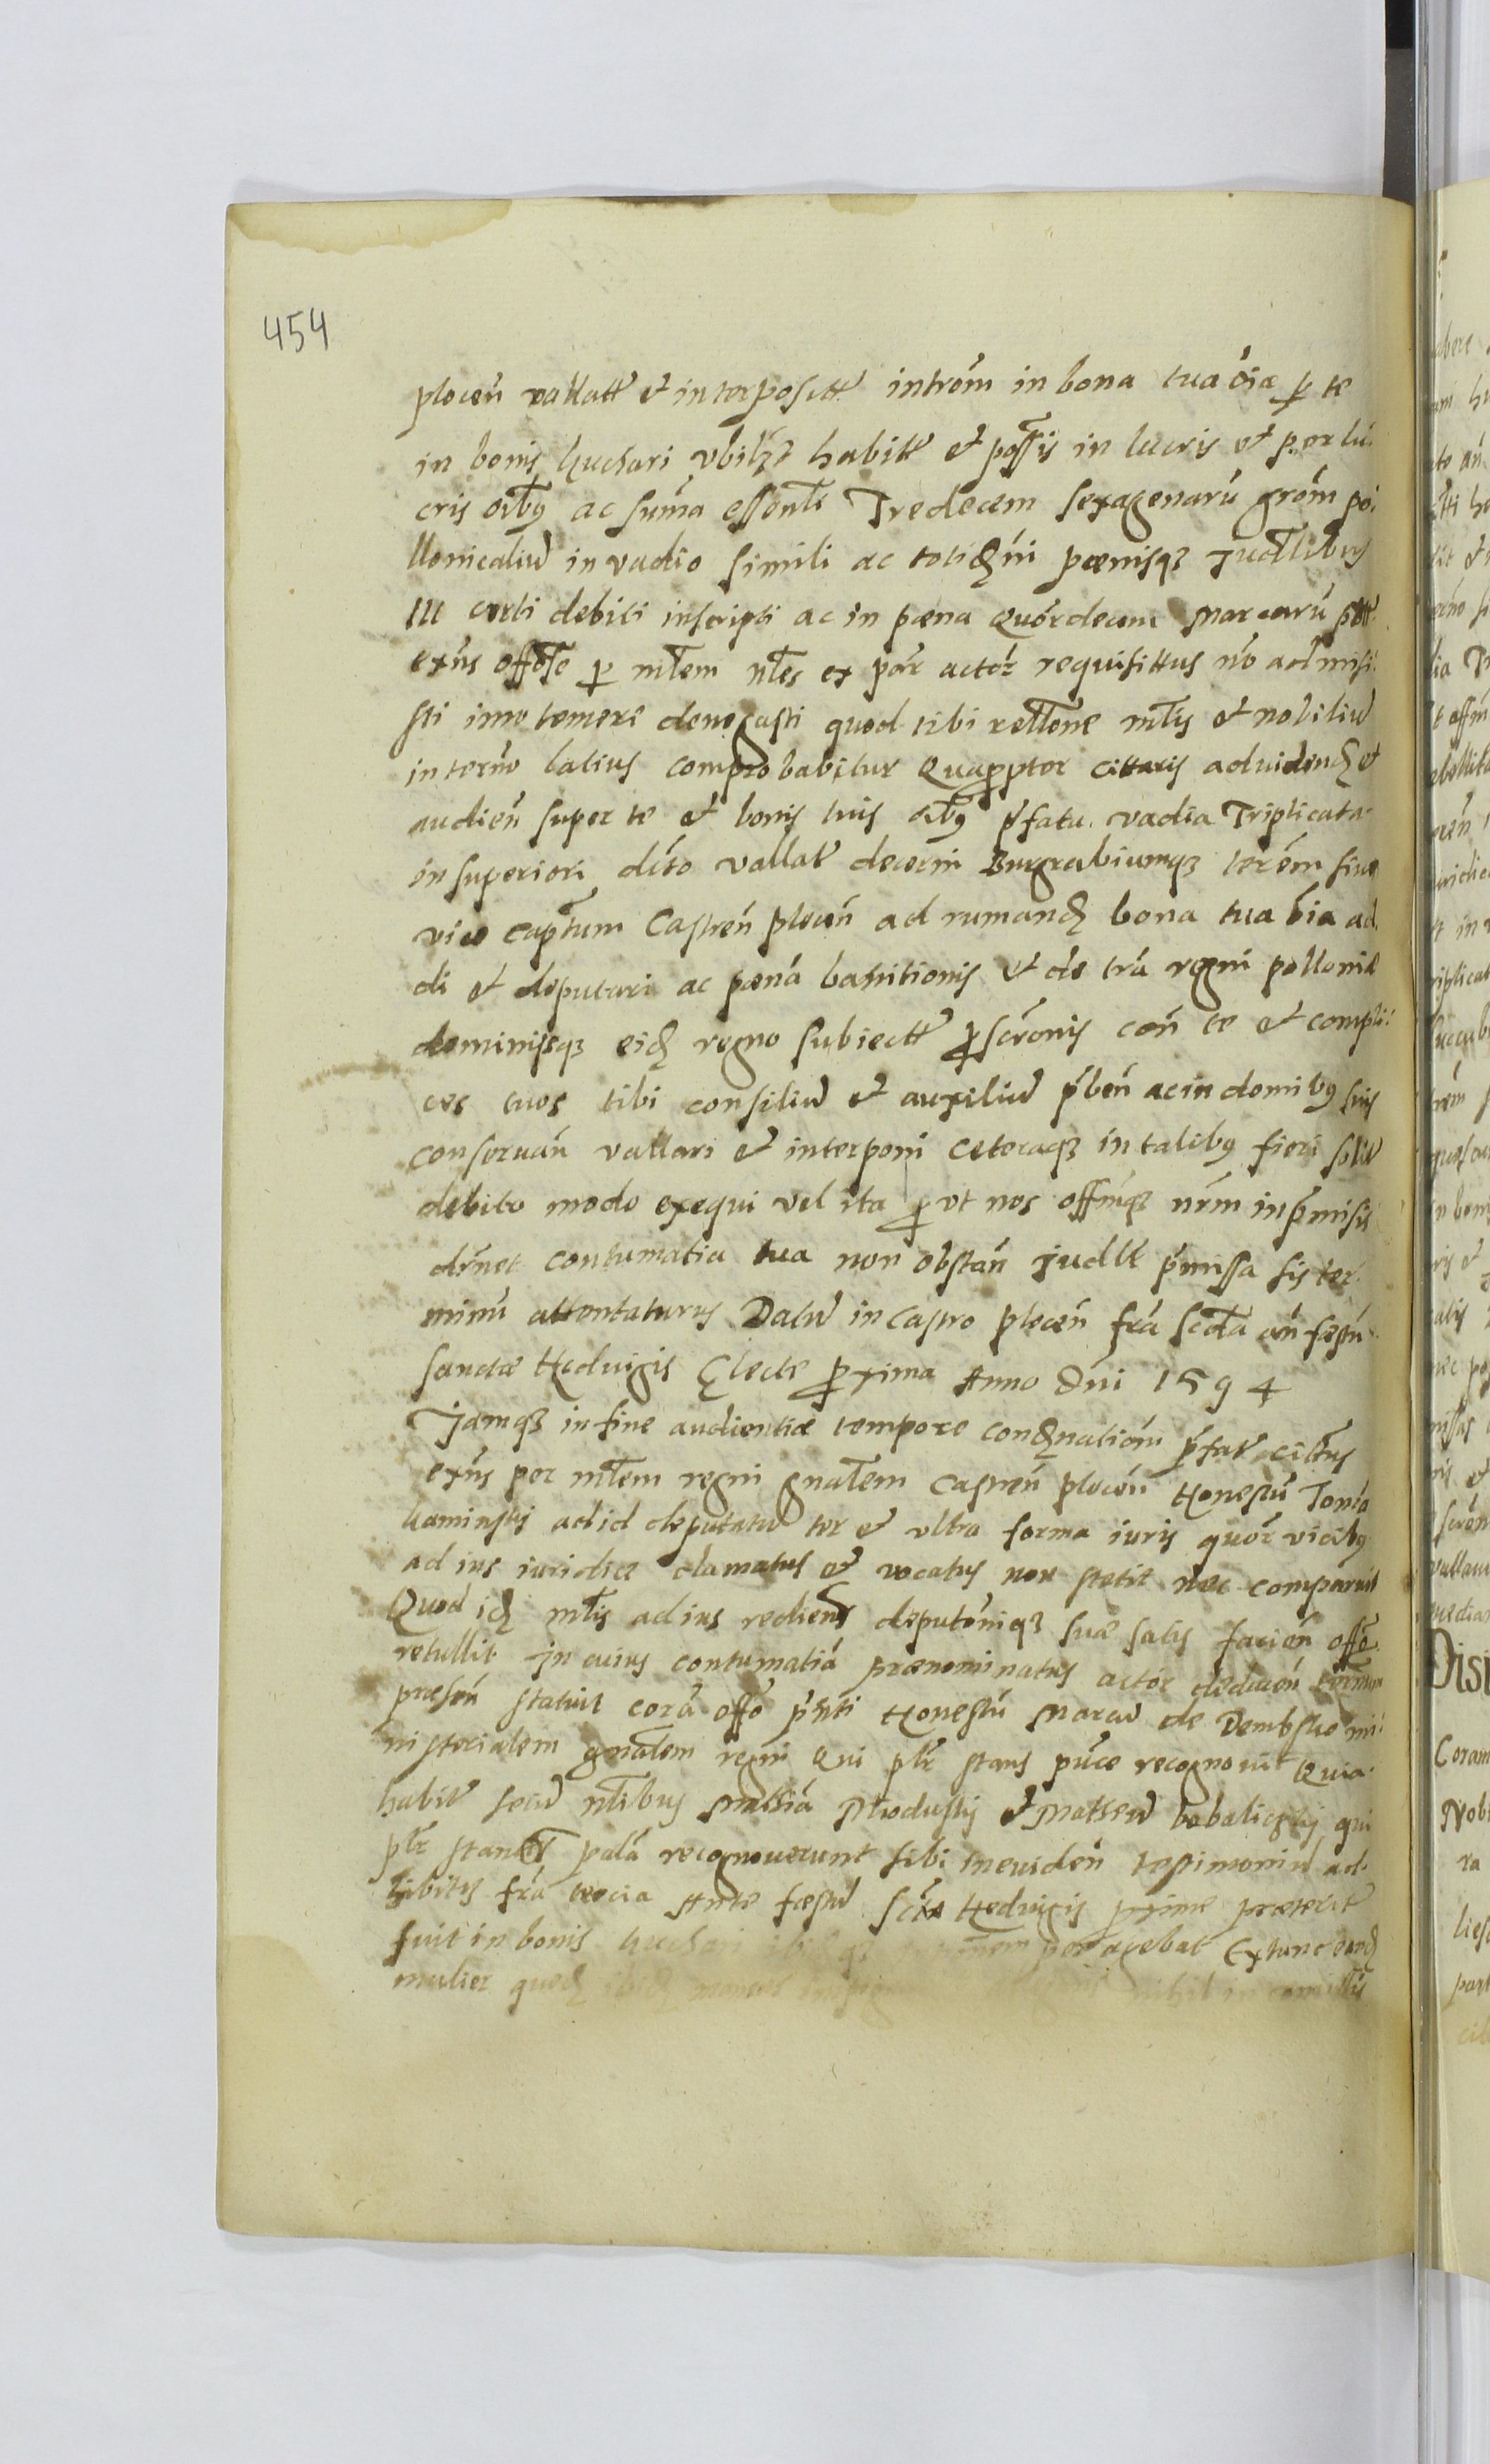 454
plocen̄ vallatt et interposittt intrōm in bona tua oīa p te
in bonis kuchari vbilz habitt et possis in lucris et per lu
cris oībq ac sum̄a essontt Tredecem sexagenarū grōm po
llonicaliū in vadio simili ac totidm̄ poenisqz Judtlibus
III certi debiti inscripti ac in poena Quōrdecem marcarū
exn̄s offōse p mt̄em nt̄es ex par actor requisittus nō admisi
sti imo temere denegasti quod tibi rellone mt̄is et nobiliū
in termō latius comprobabitur Quapptor cittaris advidend et
audien̄ super te et bonis tuis oībq pfata vadia Triplicata
in superiori dēto vallatt decerni Burgrabiumqz terēm sive
vice captum Castren̄ plocen̄ ad rumand bona tua oīa ad
di et deputari ac poenā banitionis et de trā regni polloniæ
dominijsqz eid regno subiectt pscrōnis con̄ te et compli
ces tuos tibi consiliū et auxiliū pben̄ ac in domibq suis
conservan̄ vallari et interponi ceteraqz in talibq fieri solitt
debito modo exequi vel ita p vt nos offm̄qz nrm in pmisis
drn̄et contumatia tua non obstan̄ judllt pmissa sis ter
minū attentaturus Datū in Castro plocen̄ frā scd̄a an̄ festū
sanctæ Hedvigis Electe pxima Anno Dn̄i 1594
Jamqz in fine audientiæ tempore condnatiōm pfatt citt̄us
exn̄s per mt̄em regni gnalem Castren̄ plocen̄ Honestū Tomā
kaminskij ad id deputatū ter et vltra forma iuris quōr vicibq
ad ius iuridice clamatus et vocatus non stetit nec comparuit
Quod id mt̄is ad ius rediens deputōniqz suæ satis facien̄ offō
retullit In cuius contumatiā prænominatus actor deducen̄ termn
præsen̄ statuit corā offō pn̄ti Honestū Marcū de Dembsko mi
nisterialem gnalem regni Qui pltr stans puce recognovit Quia
habitt secū nt̄ibus Mathiā Mlodustij et Matteū bobaliczkij qui
pltr stantes palā recognoverunt sibi in eviden̄ testimoniū ad
hibitus frā tercia Ante festū Sctæ Hedvigis pxime præteritt
fuit in bonis kuchari peragebat Extunc eand
mulier quod nihil in